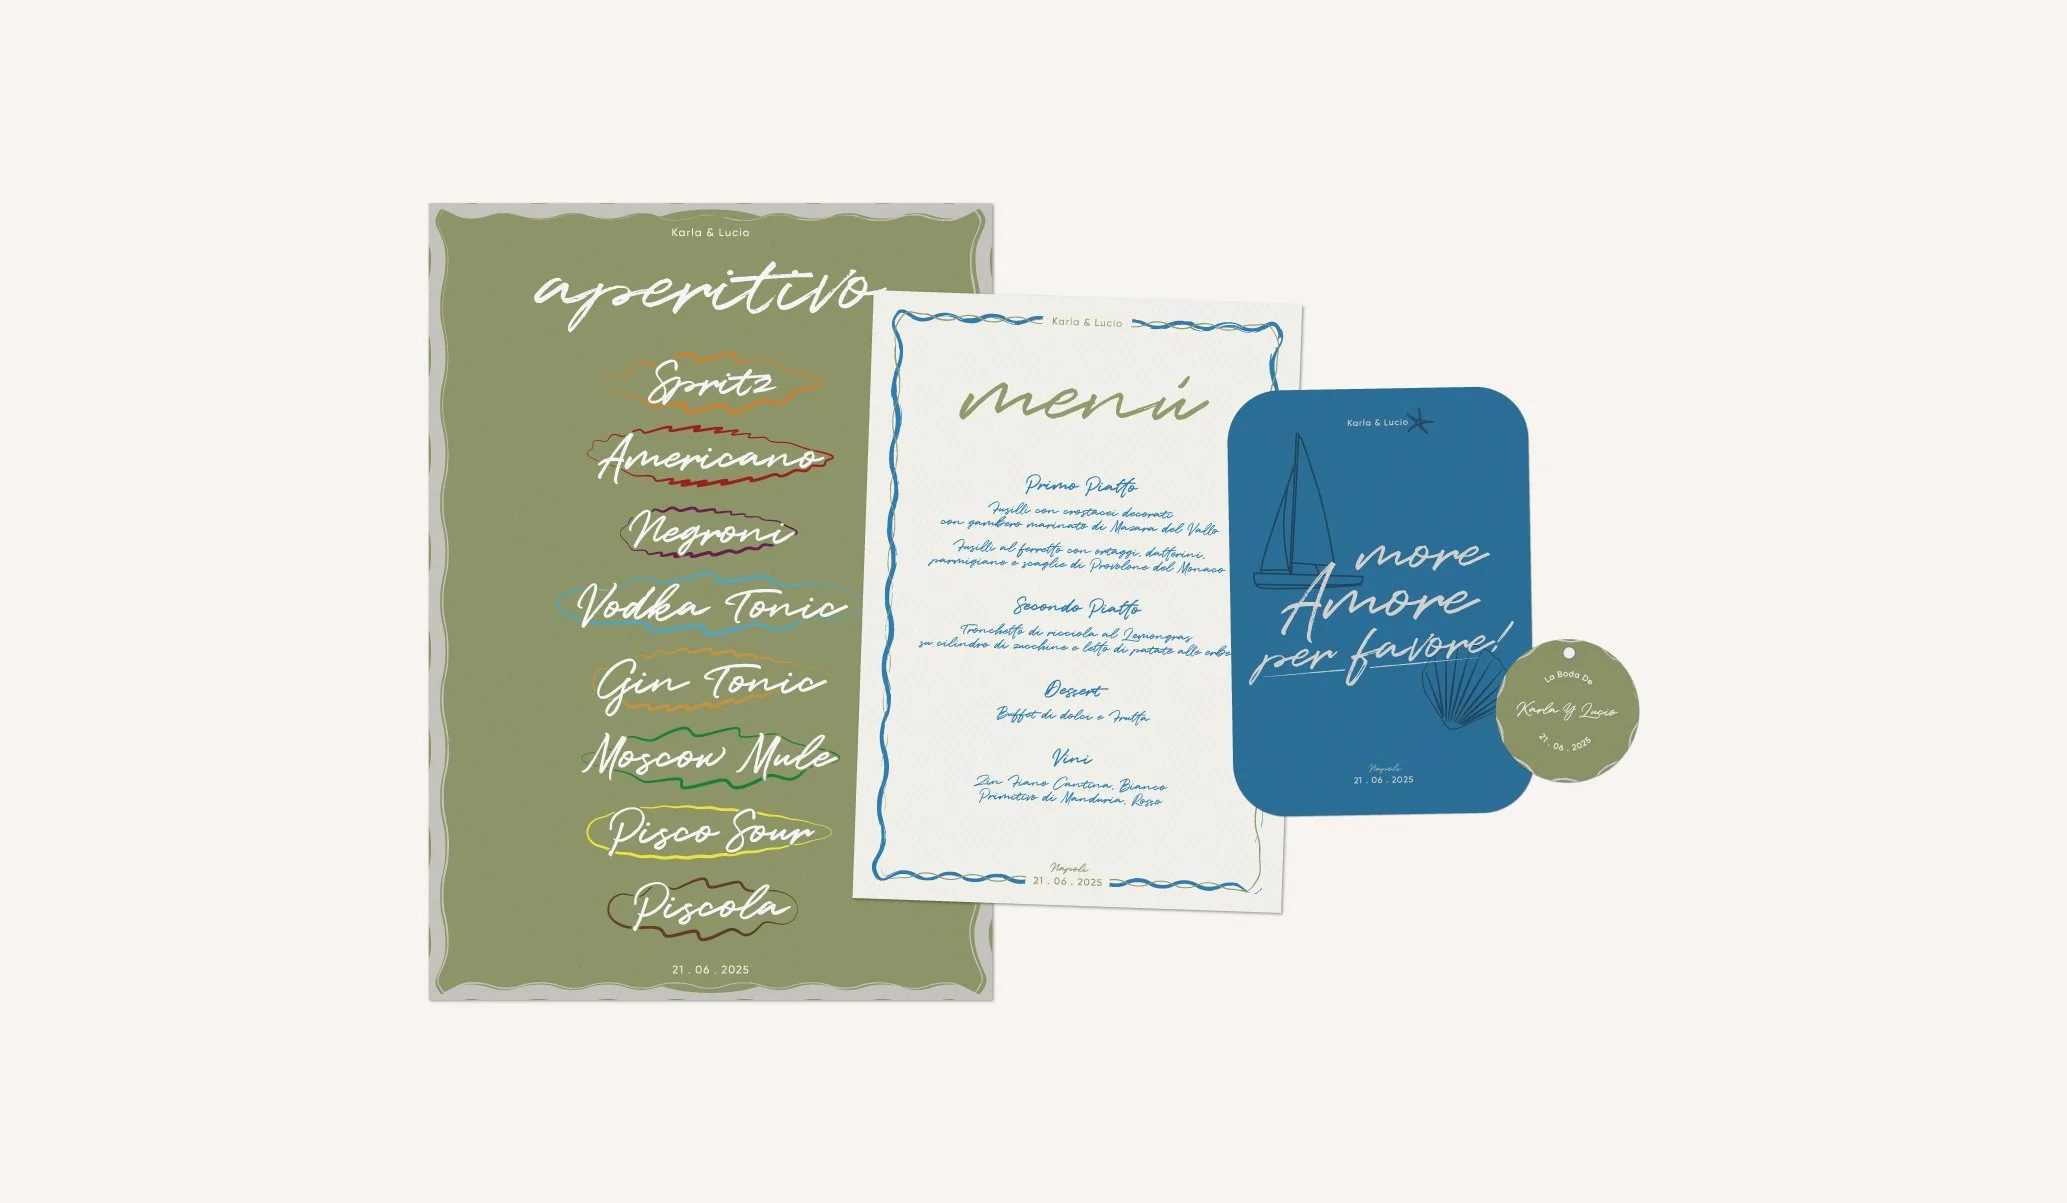 Karla & Lucio
aperitivo
Spritz
Americano
Negroni
Vodka Tonic
Gin Tonic
Moscow Mule
Pisco Sour
Piscola
21 . 06 . 2025
Karla & Lucio
menú
Primo Piatto
Fusilli con crostacei decorati
con gambero marinato di Mazara del Vallo
Fusilli al ferretto con ortaggi, datterini,
parmigiano e scaglie di Provolone del Monaco
Secondo Piatto
Tronchetto di ricciola al Lemongras
su cilindro di zucchine e letto di patate alle erbe
Dessert
Buffet di dolci e Frutta
Vini
Zin Fiano Cantina, Bianco
Primitivo di Manduria, Rosso
Napoli
21 . 06 . 2025
Karla & Lucio
more
Amore
per favore!
Napoli
21 . 06 . 2025
La Boda De
Karla Y Lucio
21 . 06 . 2025